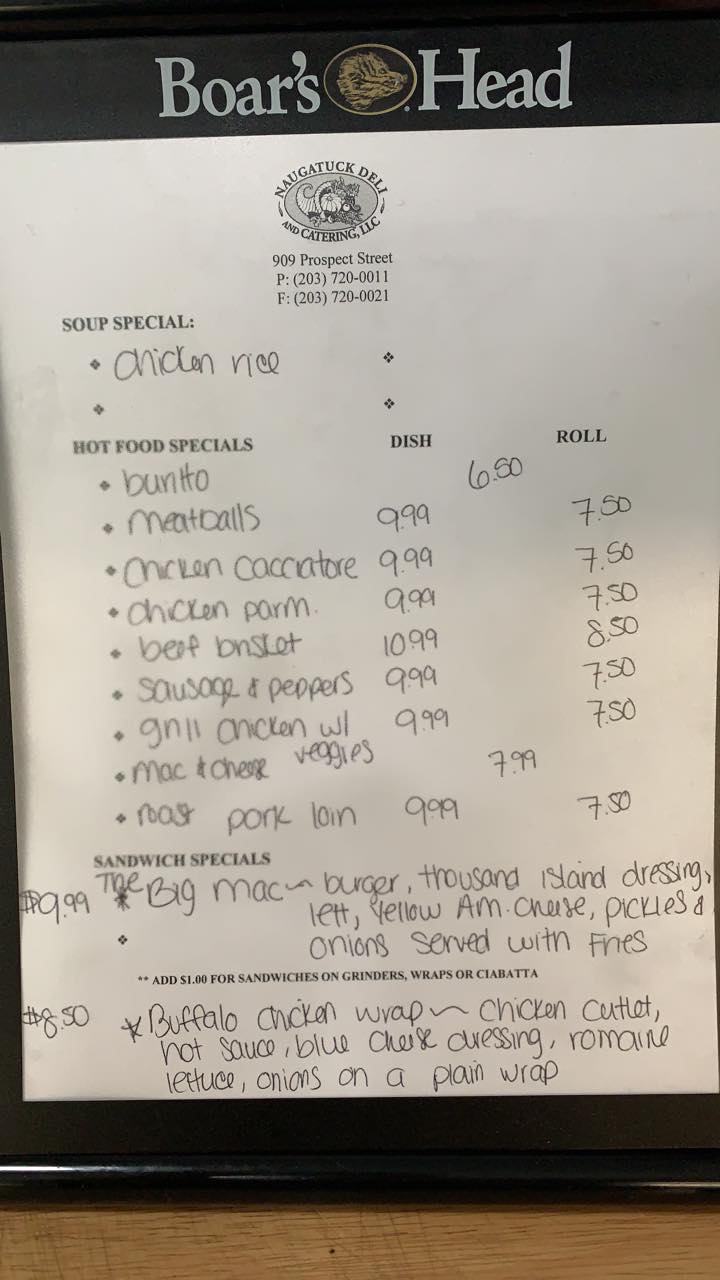 Boar's Head
NAUGATUCK DELI
AND CATERING, LLC
909 Prospect Street
P: (203) 720-0011
F: (203) 720-0021
SOUP SPECIAL:
chicken rice
HOT FOOD SPECIALS DISH ROLL
burrito 6.50
meatballs 9.99 7.50
chicken cacciatore 9.99 7.50
chicken parm. 9.99 7.50
beef brisket 10.99 8.50
sausage & peppers 9.99 7.50
grill chicken w/ veggies 9.99 7.50
mac & cheese 7.99
roast pork loin 9.99 7.50
SANDWICH SPECIALS
$9.99 The Big mac ~ burger, thousand island dressing,
lett, Yellow Am. cheese, pickles &
onions served with Fries
** ADD $1.00 FOR SANDWICHES ON GRINDERS, WRAPS OR CIABATTA
$8.50 * Buffalo chicken wrap ~ chicken cutlet,
hot sauce, blue cheese dressing, romaine
lettuce, onions on a plain wrap